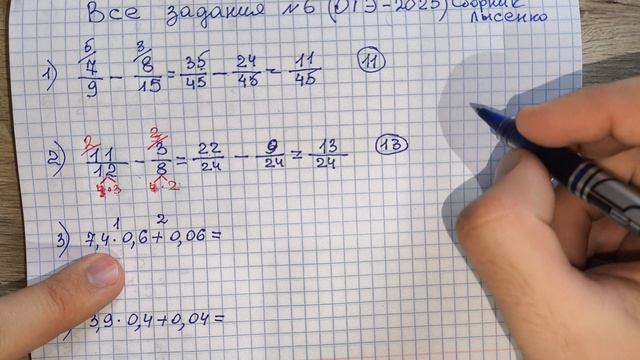 Все задания №6 (ОГЭ-2025) Сборник
Лысенко
1) 5/ 7/9 - 3/ 8/15 = 35/45 - 24/45 = 11/45 (11)
2) 2/ 11/12 - 3/8 = 22/24 - 9/24 = 13/24 (13)
4·3 4·2
1 2
3) 7,4 · 0,6 + 0,06 =
) 3,9 · 0,4 + 0,04 =